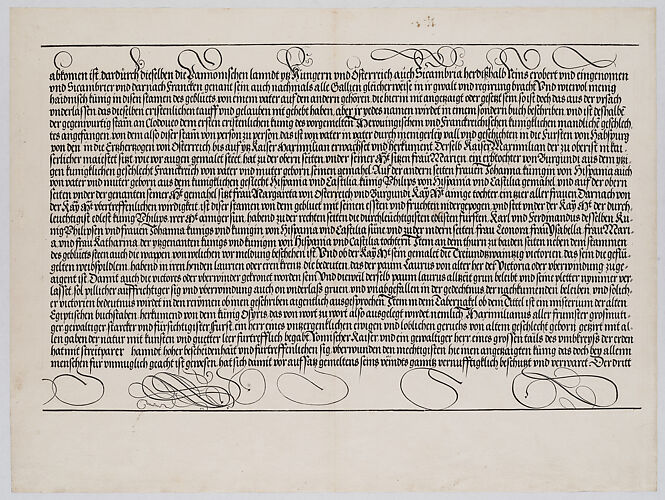 abkomen ist dardurch dieselben die Pannonischen lanndt ytz Hungern vnd Osterreich auch Sicambria herdißhalb Reins erobert vnd eingenomen
vnd Sicambrier vnd darnach Francken genant sein auch nachmals alle Gallien gleicherweise in ir gwalt vnd regirung bracht Vnd wiewol menig
haidnisch künig in disen stamen des geblüets von einem vater auf den andern gehören die hierin mit angezaigt oder gesetzt sein so ist doch das aus der vrsach
vnderlassen das dieselben cristenlichen tauff vnd gelauben nit gehebt haben aber ir yedes namen wirdet in einem sondern buch beschriben vnd ist deshalb
der gegenwurtig stam an Clodoueo dem ersten cristenlichen künig des vorgemelten geschlechts
tes angefangen von dem also diser stam von person zu person das ist von vater in vater durch menigerley vall vnd geschichten in die Fursten von Habspurg
von den in die Ertzhertzogen von Osterreich bis auf ytz Kaiser Maximilian erwachsst vnd herkument Derselb Kaiser Maximilian der zu oberist in kai
serlicher maiestet sitzt wie vor augen gemalet steet hat zu der obern seiten vnder seiner sitzen frau Marien ein erbtochter von Burgundi aus dem ytzi
gen kunigklichen geschlecht Franckreich von vater vnd muter geborn seinen gemahel Auf der andern seiten frauen Johanna künigin von Hispania auch
von vater vnd muter geborn aus dem kunigklichen geslecht Hispania vnd Castilia künig Philips von Hispania vnd Castilia gemahel vnd auf der obern
seiten vnder der genanten seiner gemahel sitzt frau Margareta von Osterreich vnd Burgundi Kay ainige tochter ein zier aller frauen Darnach von
der Kay vertreffenlichen wirdigkeit ist diser stamen von dem gebluet mit seinen essten vnd fruchten nidergepogen vnd stet vnder der Kay der durch
leuchtigist edlest künig Philips irer ainiger sun habend zu der rechten seiten die durchleichtigisten edlisten fürsten Karl vnd Ferdinandus desselben Ku
nig Philipsen vnd frauen Johanna kunigs vnd kunigin von Hispania vnd Castilia süne vnd zu der andern seiten frau Leonora frau Ysabella frau Mari
a vnd frau Katharina der ytzgenanten kunigs vnd kunigin von Hispania vnd Castilia tochtern Item an dem thurn zu baiden seiten neben dem stammen
des geblüets steen auch die wappen von welichen vor meldung bestehen ist Vnd ob der Kay sein gemalet die Treiundtzwaintzig victorien das sein die geflü
gelten weibspildern habend in iren henden laurein oder eren krentz die bedeuten das der paum Laurus von alter her der Victoria oder vberwindung zuge
aigent ist Damit dann die victores oder vberwinder gekronet worden sein Vnd dieweil derselb paum laurus allzeit grun beleibt vnd seine pletter nymer ver
lasset sol pillicher auffrichtiger sig vnd vberwindung auch on vnderlass gruen vnd vnabgefallen in der gedechtnus der nachkomenden beleiben vnd solich
er victorien bedeutnus wirdet in den reymen oben geschriben aigentlich ausgesprochen Item in dem Tabernakl ob dem Tittel ist ein misterium der alten
Egiptischen buchstaben herkumend von dem künig Osyris das von wort zu wort also ausgelegt wirdet nemlich Maximilianus aller frümster großmuti
ger gewaltiger starcker vnd fürsichtigister Furst ein herr eines vntzergencklichen ewigen vnd loblichen geruchs von altem geschlecht geborn getziret mit al
len gaben der natur mit kunsten vnd gueter lier furtrefflich begabt Romischer Kaiser vnd ein gewaltiger herr eines grossen tails des vmbkreyß der erden
hat mit streitparer hanndt hoher bescheidenhait vnd furtreffenlichen sig vberwunden den mechtigisten hie inen angezaigten künig das doch bey allenn
menschen für vnmuglich geacht ist gewesen hat sich damit vor auffsatz gemeltens seins veindes ganntz vernufftigklich beschutzt vnd verwaret Der dritt